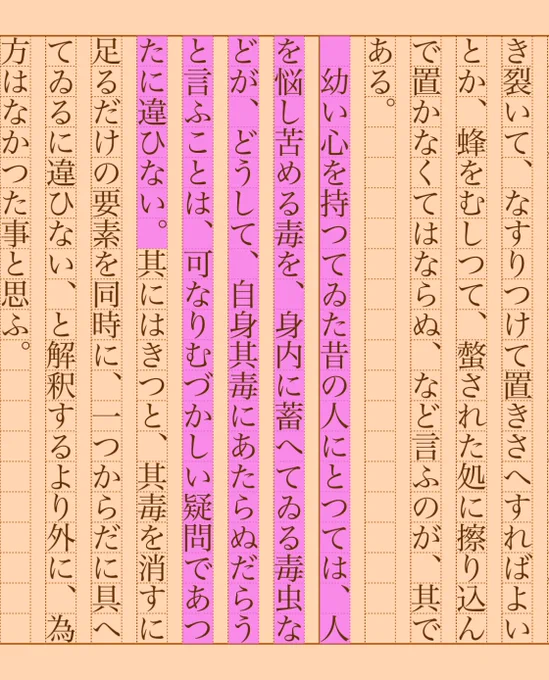 き裂いて、なすりつけて置きさへすればよい
とか、蜂をむしつて、螫された処に擦り込ん
で置かなくてはならぬ、など言ふのが、其で
ある。
幼い心を持つてゐた昔の人にとつては、人
を悩し苦める毒を、身内に蓄へてゐる毒虫な
どが、どうして、自身其毒にあたらぬだらう
と言ふことは、可なりむづかしい疑問であつ
たに違ひない。其にはきつと、其毒を消すに
足るだけの要素を同時に、一つからだに具へ
てゐるに違ひない、と解釈するより外に、為
方はなかつた事と思ふ。